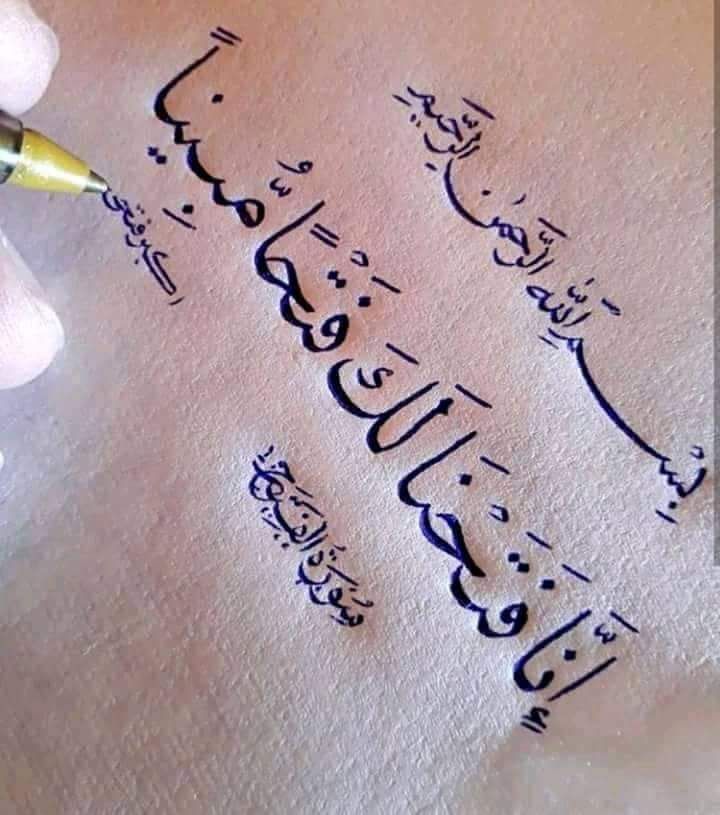 بِسْمِ اللَّهِ الرَّحْمَنِ الرَّحِيمِ
إِنَّا فَتَحْنَا لَكَ فَتْحًا مُّبِينًا
سُورَةُ الْفَتْحِ